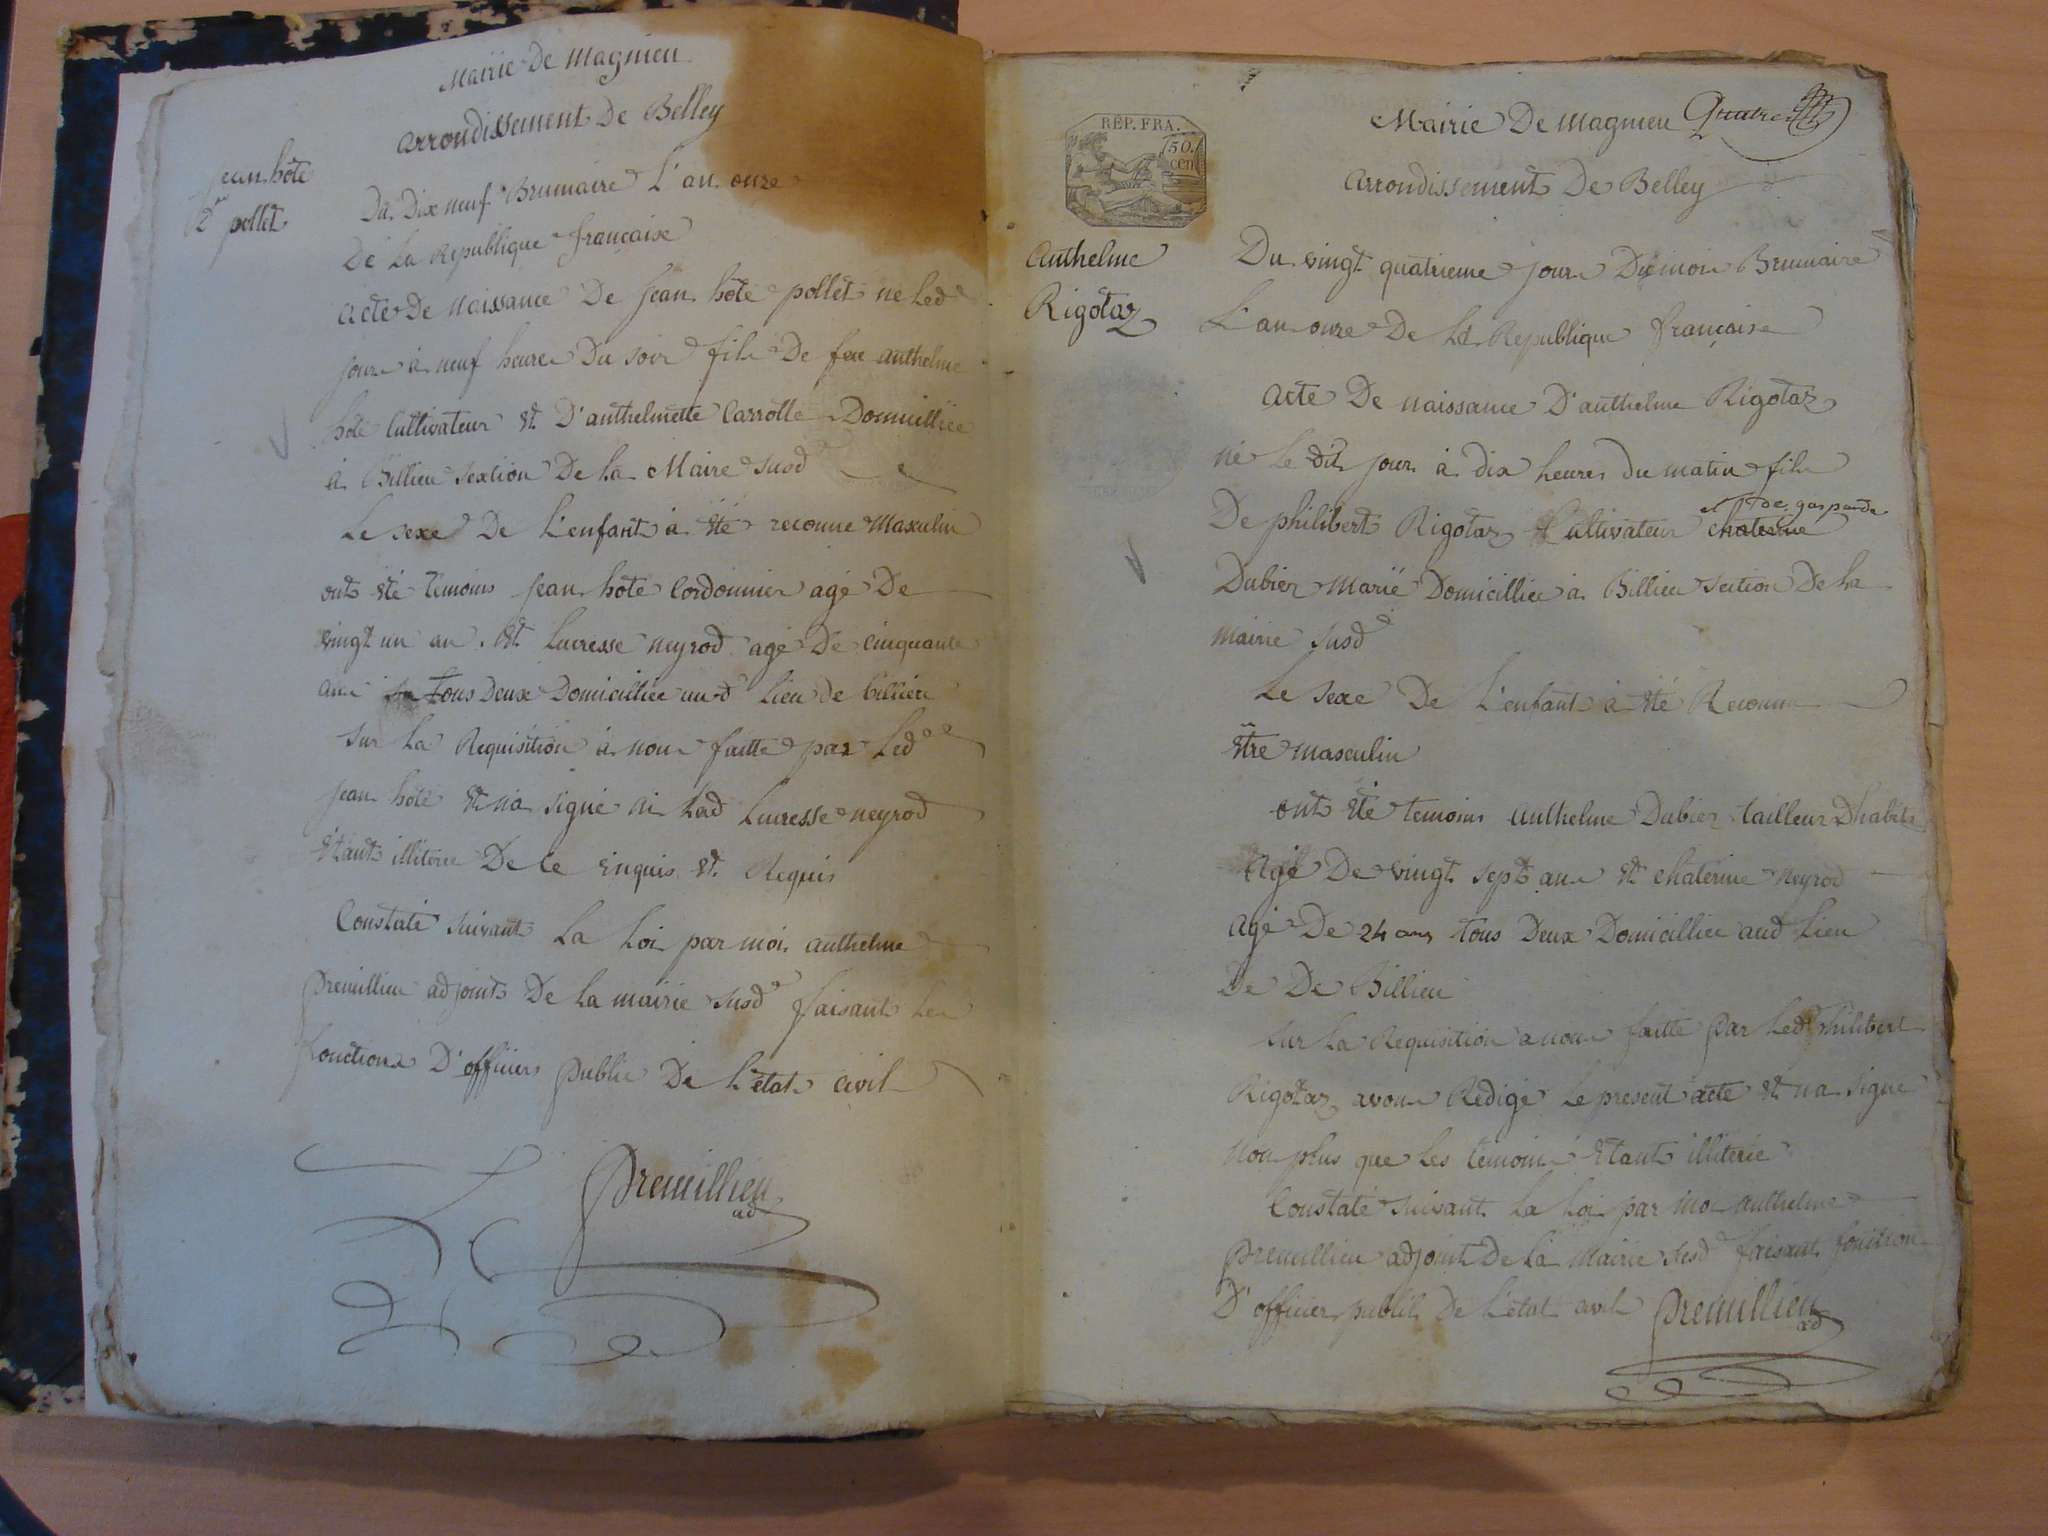 Mairie De Magnieu
arrondissement De Belley
jean hôte
pollet
Du Dix neuf Brumaire L'an onze
De La Republique française
acte De Naissance De jean hôte pollet né Led
jour à neuf heure Du soir fils De feu anthelme
hôte Cultivateur et D'anthelmette Carrotte Domicilliée
à Billieu Section De La Maire susd
Le sexe De L'enfant à été reconnu Masculin
ont été temoins jean hôte Cordonnier agé De
vingt un an et Lucresse neyrod agé De cinquante
ans tous Deux Domicilliée aud Lieu de billieu
Sur La Requisition à nous faitte par Led
jean hôte et na signé ni Lad Lucresse neyrod
étant illiterée De Ce enquis et Requis
Constaté suivant La Loi par moi anthelme
Premillieu adjoint De La mairie susd faisant les
fonctions D'officier public De L'état civil
Premillieu
ad
REP. FRA.
50.
cen
Mairie De Magnieu Quatre
arrondissement De Belley
Anthelme
Rigotaz
Du vingt quatrieme jour Du mois Brumaire
L'an onze De La Republique française
acte De naissance D'anthelme Rigotaz
né Le dit jour à dix heures du matin fils
et de gasparde
De philibert Rigotaz Cultivateur
Dubier Marié Domicilliée à Billieu Section De La
mairie susd
Le sexe De L'enfant à été Reconnu
être masculin
ont été temoins anthelme Dubier tailleur Dhabits
Agé De vingt sept ans et chaterine Neyrod
agé De 24 ans tous Deux Domicilliée aud Lieu
De De Billieu
Sur La Requisition a nous faitte par Led Philibert
Rigotaz avons Redigé Le present acte et na signé
non plus que Les temoins étant illiterée
Constaté suivant La Loi par moi anthelme
Premillieu adjoint De La Mairie susd faisant fonction
D'officier public De L'état civil Premillieu
ad